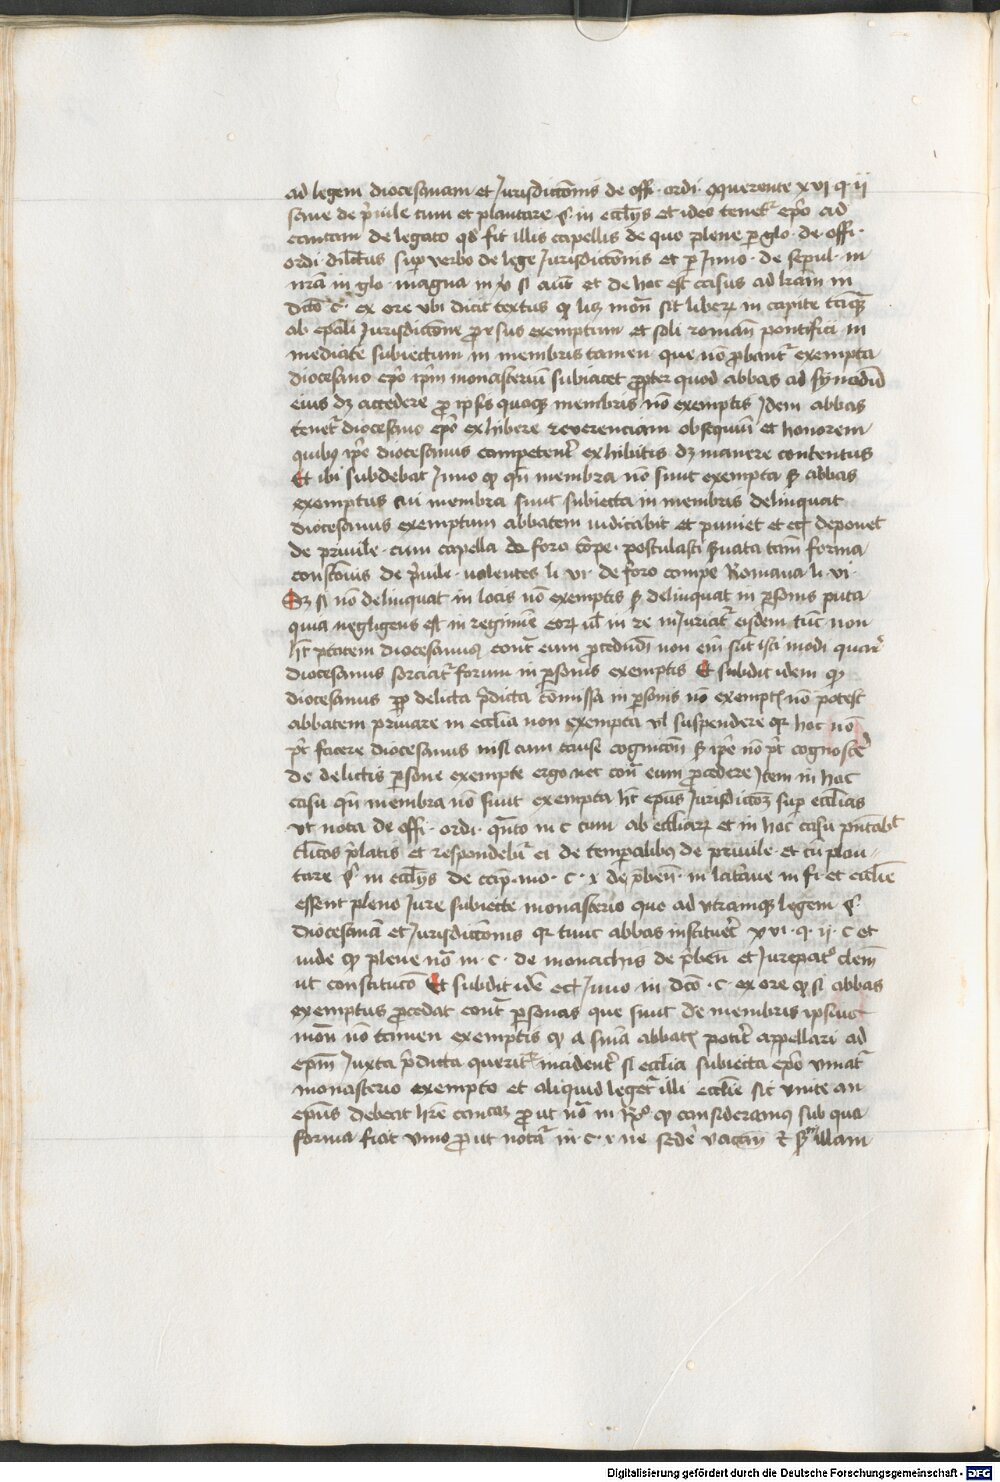 ad legem diocesanam et Jurisdictōnis de offi · ordi · ꝯquerente xvi q · ii
sane de p̄uile cum et plantare § in eccl̄ijs et ideo tenet᷑ ep̄o ad
cautam de legato qd̄ fit illis capellis de quo plene ꝑ glo · de offi ·
ordi · dilc̄tus suꝑ verbo de lege Jurisdictōnis et ꝑ Inno · de sepul · in
nr̄a in glo · magna in v̄ si aūt et de hoc est casus ad lr̄am in
dc̄o · c · ex ore vbi dicit textus ꝙ lꝫ mon̄ sit liberꝝ in capite
ab epāli Jurisdictōne ꝓrsus exemptum et soli roman̄ pontifici in
mediate subiectum in membris tamen que nō ꝓbant᷑ exempta
diocesano ep̄o ip̄m monasteriū subiacet ꝓpter quod abbas ad synodū
eius dꝫ accedere ꝓ ip̄is quoqꝫ membris nō exemptis Idem abbas
tenet᷑ diocesano ep̄o exhibere reverenciam obsequiū et honorem
quibꝰ ip̄e diocesanus competent᷑ exhibitis dꝫ manere contentus
Et ibi subdebat Inno ꝙ qn̄ membra nō sunt exempta sꝫ abbas
exemptus cui membra sunt subiecta in membris delinquat
diocesanus exemptum abbatem iudicabit et puniet et ec̄ deponet
de privile · cum capella de foro cōpe · postulasti ẜuata tam̄ forma
constōnis de p̄uile · volentes li vi · de foro compe Romana li · vi ·
Sꝫ si nō delinquat in locis nō exemptis sꝫ delinquat in ꝑsonis puta
quia negligens est in regimīe eorꝝ ul̄ in re iniuriat᷑ eisdem tūc non
hꝫ ptātem diocesanus cont᷑ eum ꝓcedendi non em̄ sūt isti modi quar᷑
diocesanus sorciat᷑ forum in ꝑsonis exemptis Et subdit idem ꝙ
diocesanus ꝓp delicta p̄dicta cōmissa in ꝑsonis nō exempt᷑ nō potest
abbatem privare in eccl̄ia non exempta vl̄ suspendere qꝛ hoc nō
pt̄ facere diocesanus nisi cum cause cognicōn̄ sꝫ ip̄e nō pt̄ cognosc̄e
de delictis ꝑsone exempte ergo nec con᷑ eum ꝓcedere Item in hoc
casu qn̄ membra nō sunt exempta hꝫ ep̄us Jurisdictōꝫ suꝑ eccl̄ias
vt nota de offi · ordi · qn̄to in c cum ab eccl̄iarꝝ et in hoc casu pn̄tabt̄
cl̄icos p̄latis et respondebit᷑ ei de temꝑalibꝰ de privile · et cū plan
tare § in eccl̄ijs de ccip · mo · c · x de p̄ben̄ · in lat̄ane in fi · et eccl̄ie
essent pleno Jure subiecte monasterio quo ad vtramqꝫ legem §
diocesanā et Jurisdictōnis qꝛ tunc abbas instituet᷑ xvi · q · ii · c et
inde ꝙ plene nōa in · c · de monachis de p̄ben̄ et Jurepat᷑ clem̄
ut constitucō Et subdit idē ec̄ Inno in dc̄o · c · ex ore ꝙ si abbas
exemptus ꝓcedat cont᷑ ꝑsonas que sunt de membris ipsius
mon̄ nō tamen exemptis ꝙ a sn̄ia abbat᷑ potit᷑ appellari ad
ep̄m Juxta p̄dicta querit᷑ incident᷑ si eccl̄ia subiecta ep̄o vniat᷑
monasterio exempto et aliquid leget᷑ illi eccl̄ie sic vnite an
ep̄us debeat hr̄e canicaꝫ ꝓut nōa in ꝙ consideramꝰ sub qua
forma fiat vnio ꝓut notat᷑ in · c · x ne sede vacan̄ illam
Digitalisierung gefördert durch die Deutsche Forschungsgemeinschaft - DFG